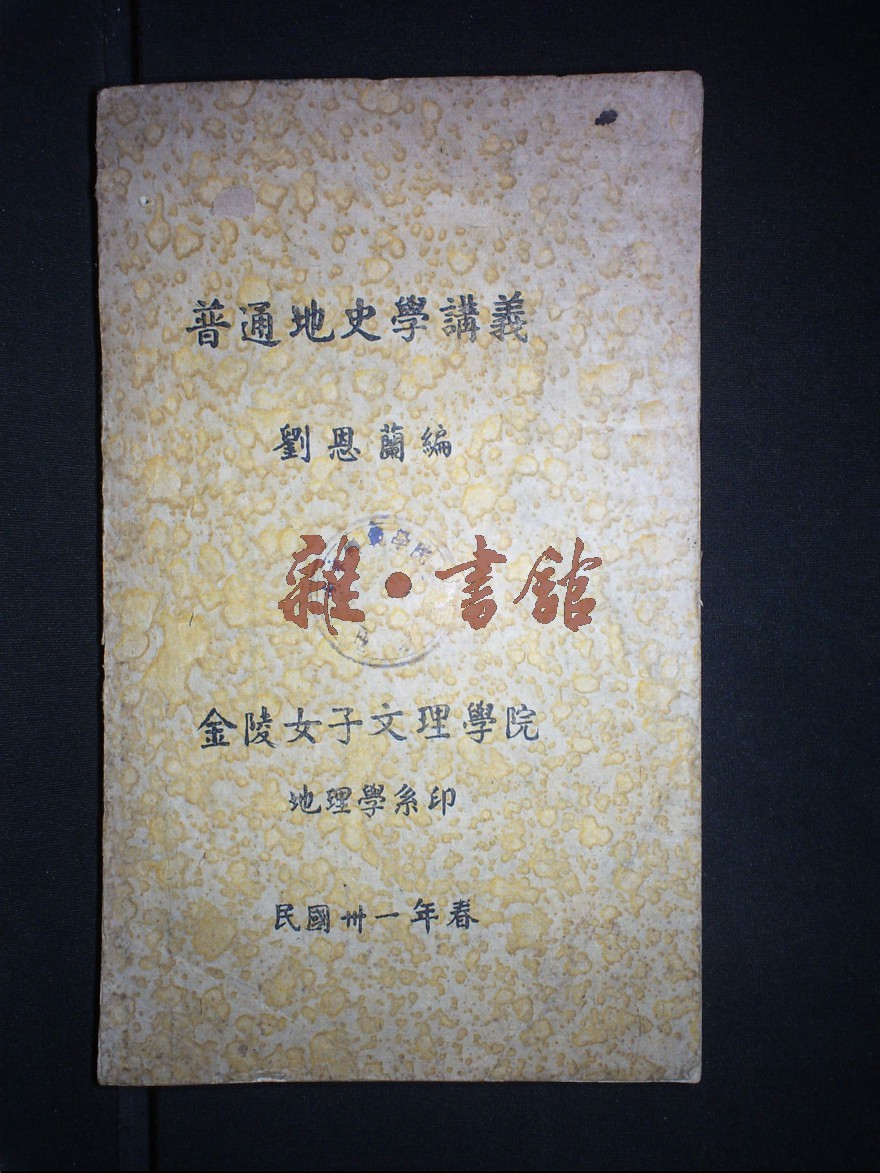 普通地史學講義
劉恩蘭編
雜·書館
金陵女子文理學院
地理學系印
民國卅一年春